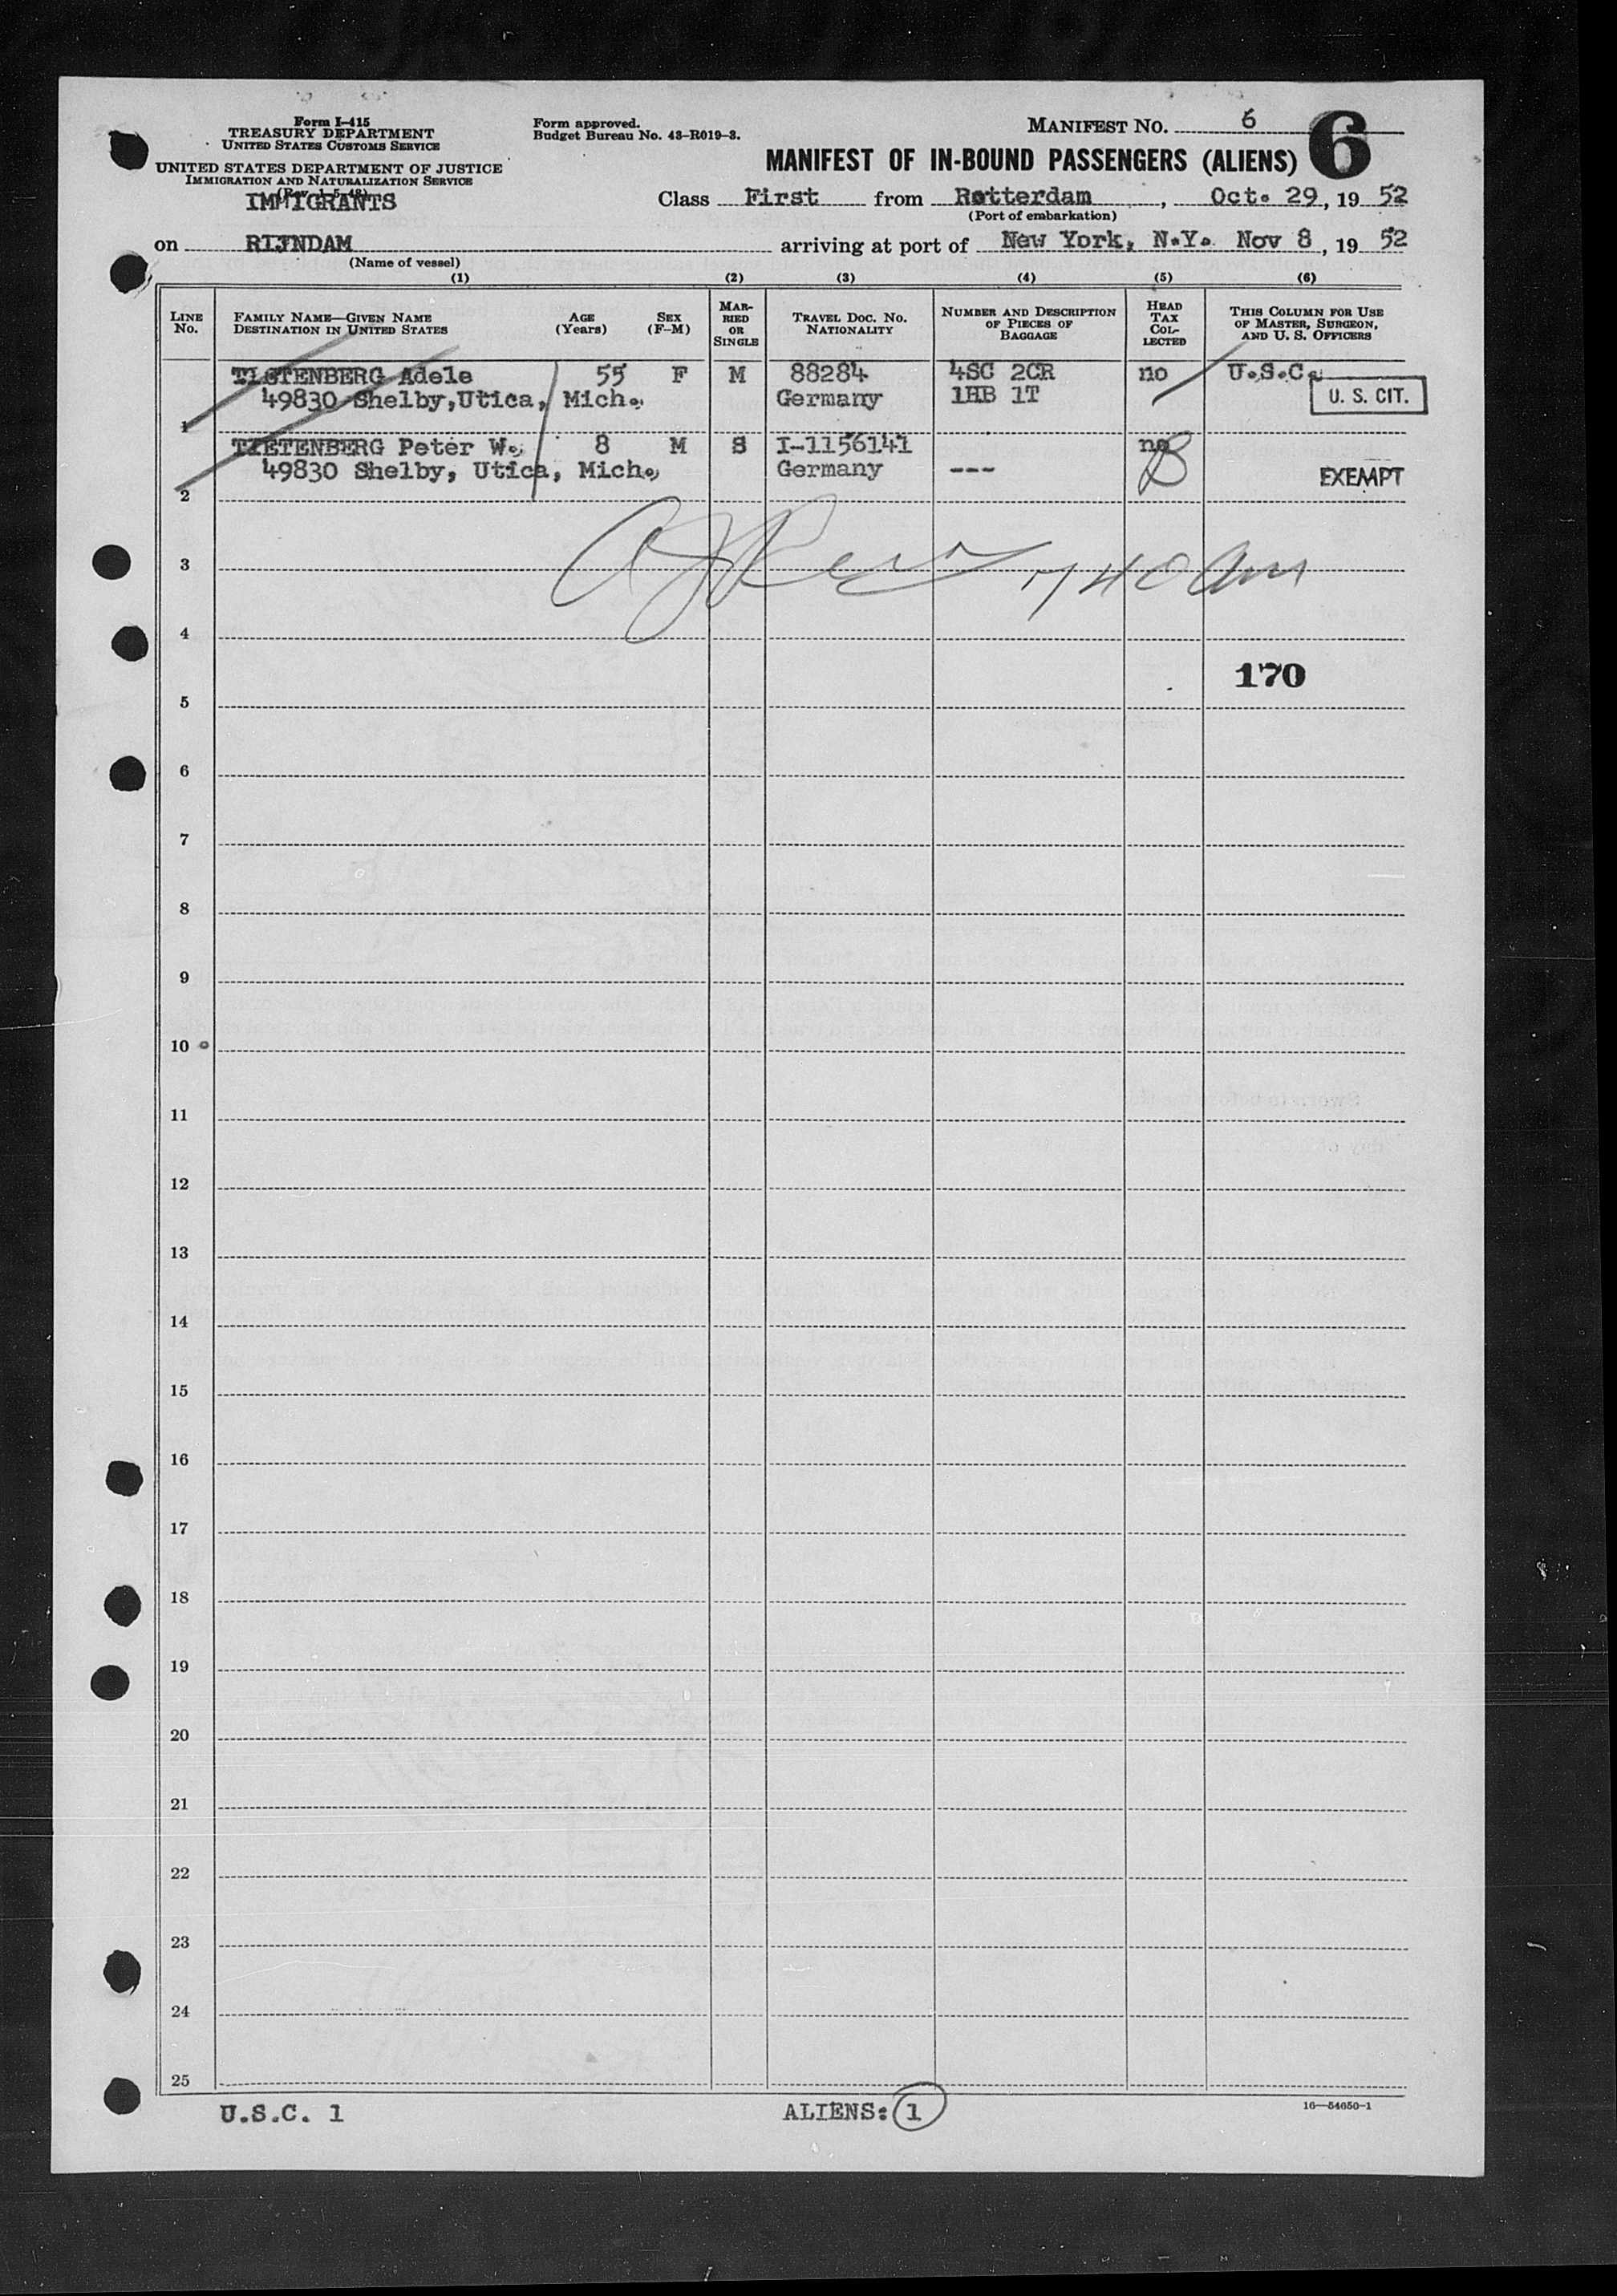 Form I-415
TREASURY DEPARTMENT
UNITED STATES CUSTOMS SERVICE
UNITED STATES DEPARTMENT OF JUSTICE
IMMIGRATION AND NATURALIZATION SERVICE
(Rev. 1-5-48)
IMMIGRANTS
Form approved.
Budget Bureau No. 43-R019-3.
MANIFEST NO. 6
6
MANIFEST OF IN-BOUND PASSENGERS (ALIENS)
Class First from Rotterdam, Oct. 29, 19 52
(Port of embarkation)
on RIJNDAM arriving at port of New York, N.Y. Nov 8, 19 52
(Name of vessel)
(1) (2) (3) (4) (5) (6)
LINE No.
FAMILY NAME—GIVEN NAME
DESTINATION IN UNITED STATES
AGE (Years)
SEX (F-M)
MARRIED OR SINGLE
TRAVEL DOC. NO.
NATIONALITY
NUMBER AND DESCRIPTION OF PIECES OF BAGGAGE
HEAD TAX COLLECTED
THIS COLUMN FOR USE OF MASTER, SURGEON, AND U. S. OFFICERS
TIETENBERG Adele 55 F M 88284 4SC 2CR no U.S.C.
49830 Shelby, Utica, Mich. Germany 1HB 1T U. S. CIT.
1
TIETENBERG Peter W. 8 M S I-1156141 no
49830 Shelby, Utica, Mich. Germany --- B EXEMPT
2
3
40 am
4
170
5
6
7
8
9
10
11
12
13
14
15
16
17
18
19
20
21
22
23
24
25
U.S.C. 1 ALIENS: 1 16—54650-1